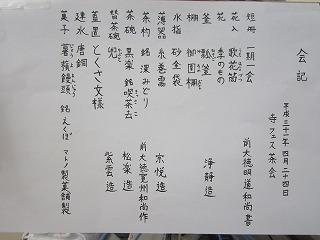 会記
平成三十一年 四月二十四日
寺フェス茶会
短冊 一期一会 前大徳明道和尚書
花入 歌花筒
花 季のもの
釜 瓢釜 浄清造
棚 御園棚
水指 砂金袋
薄器 糸巻棗 宗悦造
茶杓 銘 深みどり 前大徳寛州和尚作
茶碗 黒楽 銘 喫茶去 松楽造
替茶碗 兜 紫雲造
蓋置 とくさ文様
建水 唐銅
菓子 薯蕷饅頭 銘 えくぼ マトノ製菓舗製